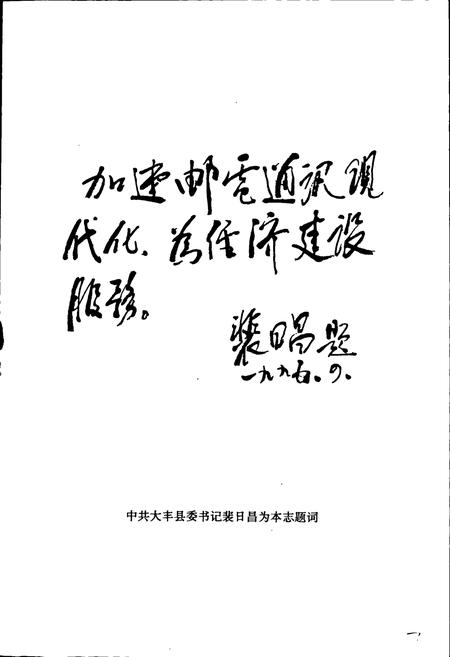 加速邮电通讯现
代化、为经济建设
服务。
裴日昌题
一九九五.四.
中共大丰县委书记裴日昌为本志题词